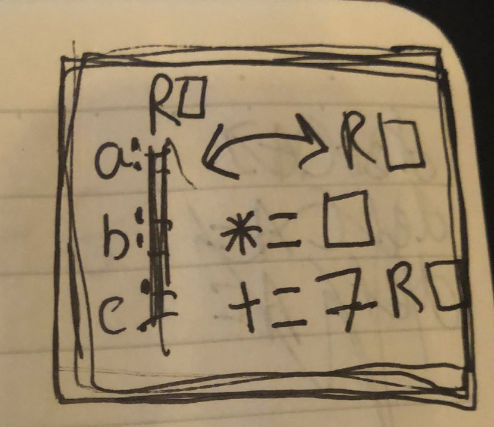 R□
a: ↔ R□
b: *= □
c: += 7R□